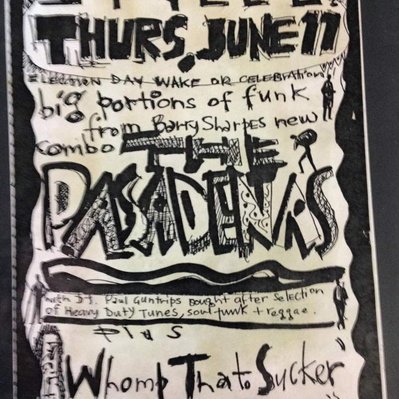 THURS. JUNE 11
ELECTION DAY WAKE OR CELEBRATION
big portions of funk
from Barry Sharpes new
combo THE
PASADENAS
with DJ. Paul Guntrips Sought after selection
of Heavy Duty Tunes, soul funk + reggae.
Whomp That Sucker